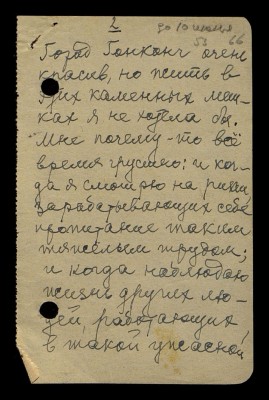 2
до 10 июня
53 66
Город Гонконг очень
красив, но жить в
этих каменных меш-
ках я не хотела бы.
Мне почему-то всё
время грустно: и ког-
да я смотрю на рикш,
зарабатывающих себе
пропитание таким
тяжёлым трудом;
и когда наблюдаю
жизнь других лю-
дей, работающих
в такой ужасной